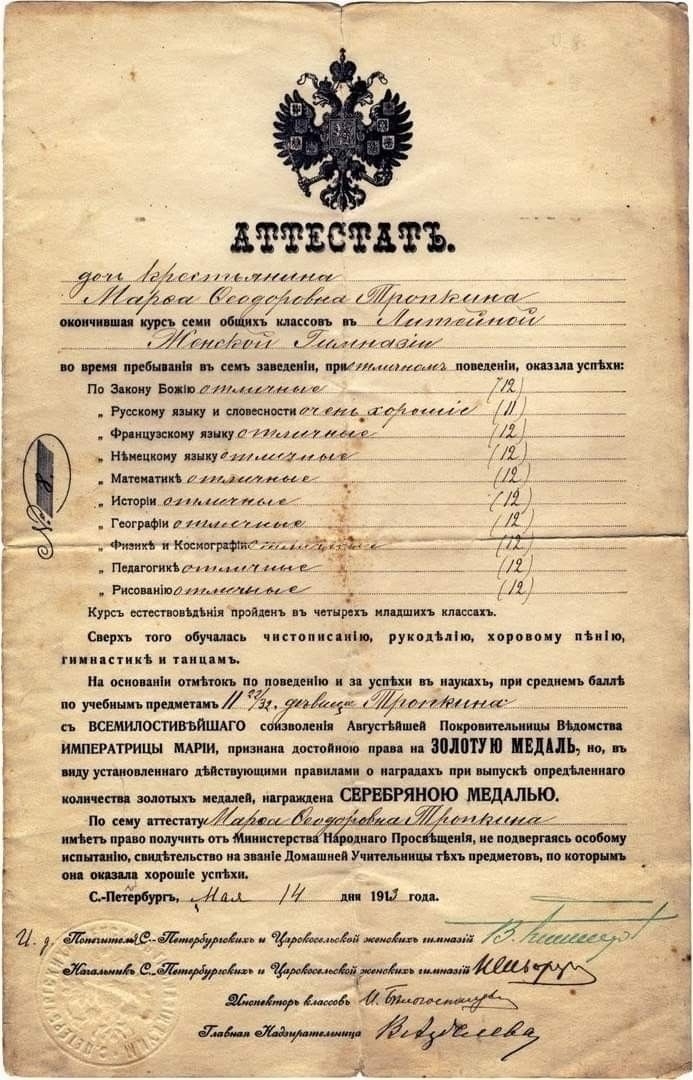 АТТЕСТАТЪ.
дочь крестьянина
Марѳа Ѳеодоровна Тропкина
окончившая курсъ семи общихъ классовъ въ Литейной
Женской Гимназіи
во время пребыванія въ семъ заведеніи, при отличномъ поведеніи, оказала успѣхи:
По Закону Божію отличные (12)
„ Русскому языку и словесности очень хорошіе (11)
„ Французскому языку отличные (12)
„ Нѣмецкому языку отличные (12)
„ Математикѣ отличные (12)
„ Исторіи отличные (12)
„ Географіи отличные (12)
„ Физикѣ и Космографіи отличные (12)
„ Педагогикѣ отличные (12)
„ Рисованію отличные (12)
№ 8
Курсъ естествовѣдѣнія пройденъ въ четырехъ младшихъ классахъ.
Сверхъ того обучалась чистописанію, рукодѣлію, хоровому пѣнію,
гимнастикѣ и танцамъ.
На основаніи отмѣтокъ по поведенію и за успѣхи въ наукахъ, при среднемъ баллѣ
по учебнымъ предметамъ 11 дѣвица Тропкина
съ ВСЕМИЛОСТИВѢЙШАГО соизволенія Августѣйшей Покровительницы Вѣдомства
ИМПЕРАТРИЦЫ МАРІИ, признана достойною права на ЗОЛОТУЮ МЕДАЛЬ, но, въ
виду установленнаго дѣйствующими правилами о наградахъ при выпускѣ опредѣленнаго
количества золотыхъ медалей, награждена СЕРЕБРЯНОЮ МЕДАЛЬЮ.
По сему аттестату Марѳа Ѳеодоровна Тропкина
имѣетъ право получить отъ Министерства Народнаго Просвѣщенія, не подвергаясь особому
испытанію, свидѣтельство на званіе Домашней Учительницы тѣхъ предметовъ, по которымъ
она оказала хорошіе успѣхи.
С.-Петербургъ, Мая 14 дня 1913 года.
И. д. Попечителя С.-Петербургскихъ и Царскосельской женскихъ гимназій
Начальникъ С.-Петербургскихъ и Царскосельской женскихъ гимназій
Инспекторъ классовъ И.
Главная Надзирательница